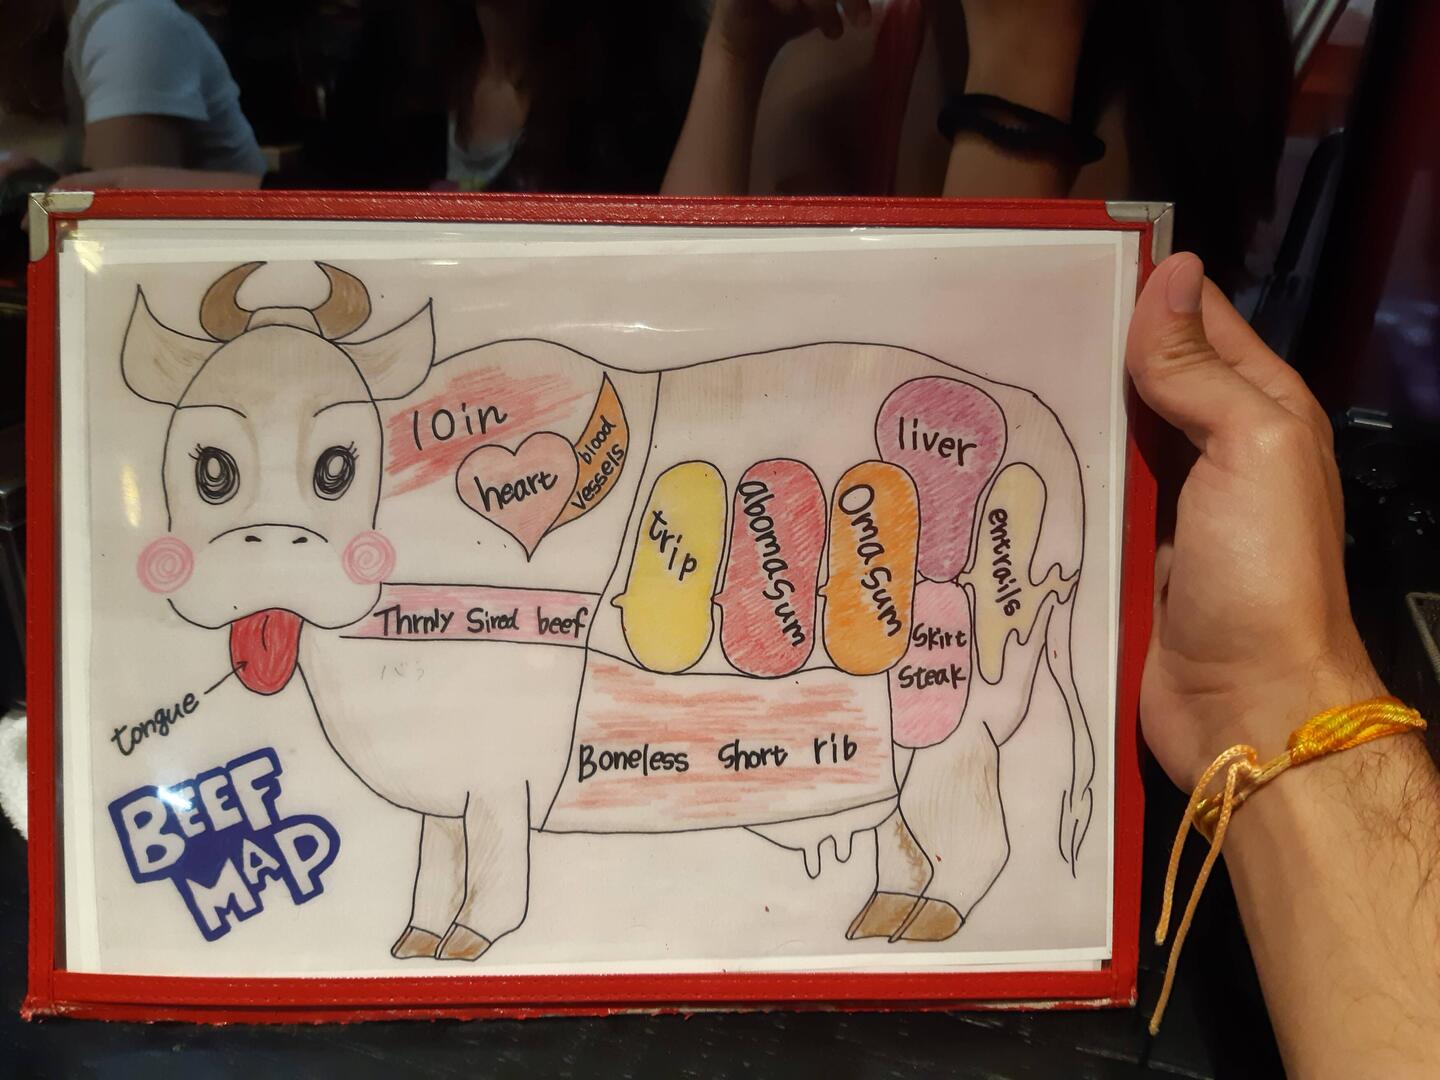 loin
heart
blood
vessels
liver
trip
abomasum
Omasum
entrails
Thrnly Sired beef
Skirt
Steak
tongue
Boneless Short rib
BEEF
MAP